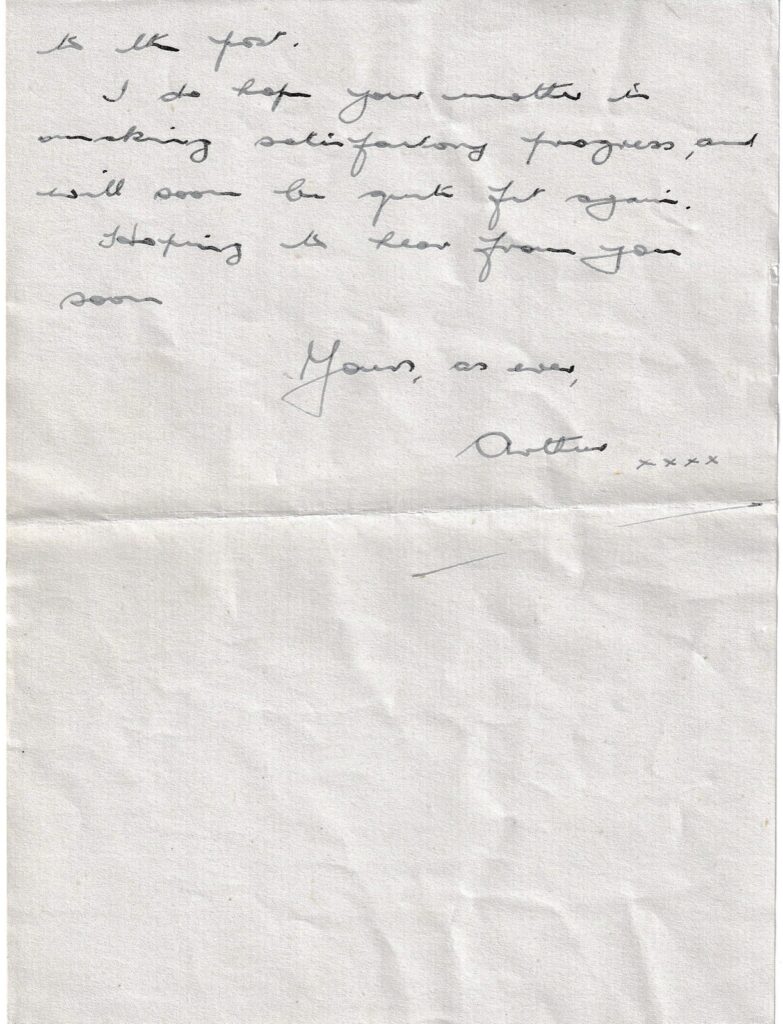 to the post.
I do hope your mother is
making satisfactory progress, and
will soon be quite fit again.
Hoping to hear from you
soon
Yours, as ever,
Arthur xxxx